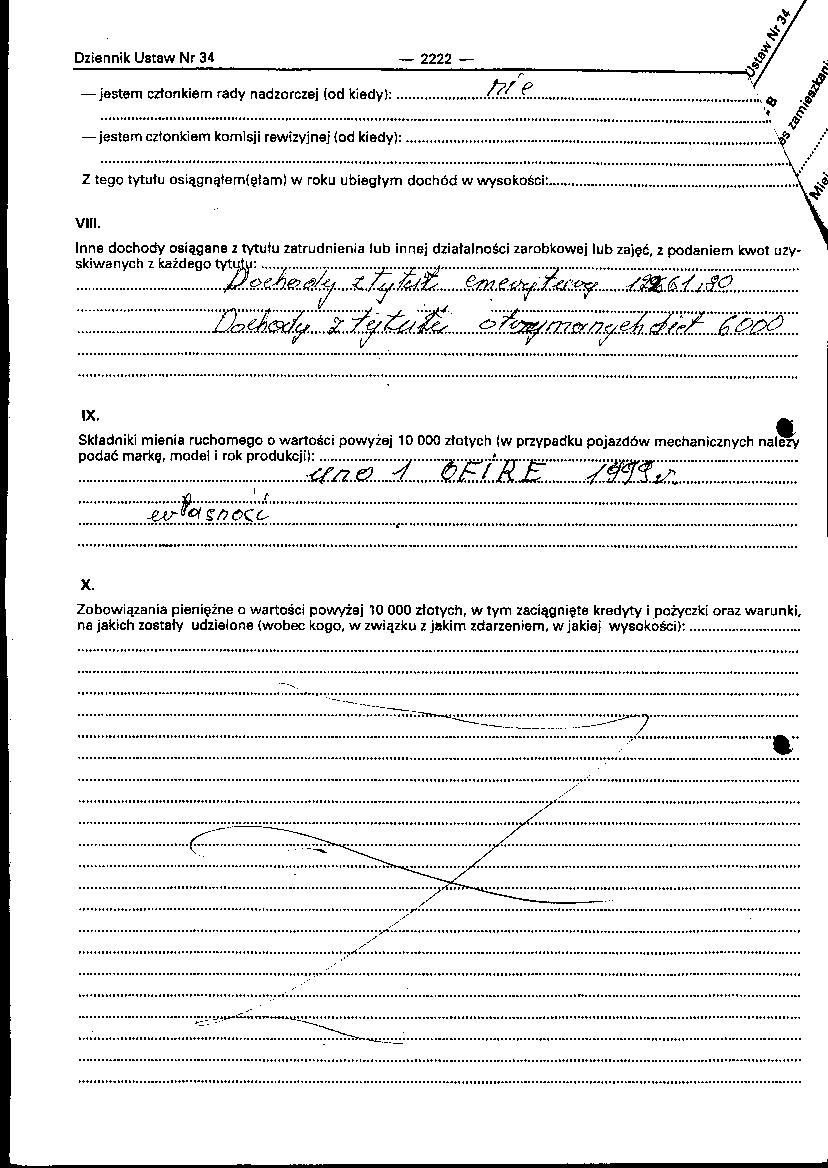 Dziennik Ustaw Nr 34 — 2222 —
Ustaw Nr 34
— jestem członkiem rady nadzorczej (od kiedy): nie
— jestem członkiem komisji rewizyjnej (od kiedy):
Z tego tytułu osiągnąłem(ęłam) w roku ubiegłym dochód w wysokości:
VIII.
Inne dochody osiągane z tytułu zatrudnienia lub innej działalności zarobkowej lub zajęć, z podaniem kwot uzy-
skiwanych z każdego tytułu:
Dochody z tytuł emerytury
Dochody z tytułu otrzymanych diet 6000
IX.
Składniki mienia ruchomego o wartości powyżej 10 000 złotych (w przypadku pojazdów mechanicznych należy
podać markę, model i rok produkcji):
uno 1 OFIRE 1999 r.
własność
X.
Zobowiązania pieniężne o wartości powyżej 10 000 złotych, w tym zaciągnięte kredyty i pożyczki oraz warunki,
na jakich zostały udzielone (wobec kogo, w związku z jakim zdarzeniem, w jakiej wysokości):